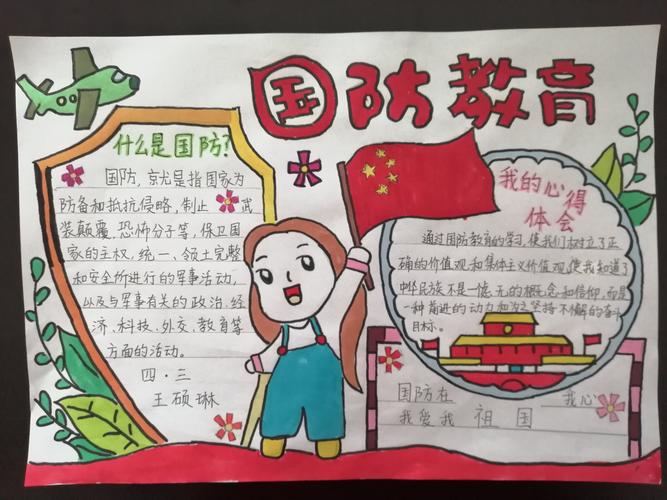 国防教育
什么是国防?
国防,就是指国家为
防备和抵抗侵略,制止 武
装颠覆、恐怖分子等,保卫国
家的主权,统一、领土完整
和安全所进行的军事活动,
以及与军事有关的政治、经
济、科技、外交、教育等
方面的活动。
四·三
王硕琳
我的心得
体会
通过国防教育的学习,使我们树立了正
确的价值观和集体主义价值观,使我知道了
中华民族不是一虚无的概念和信仰,而是
一种前进的动力和为之坚持不懈的奋斗
目标。
国防在 我心
我爱我 祖国